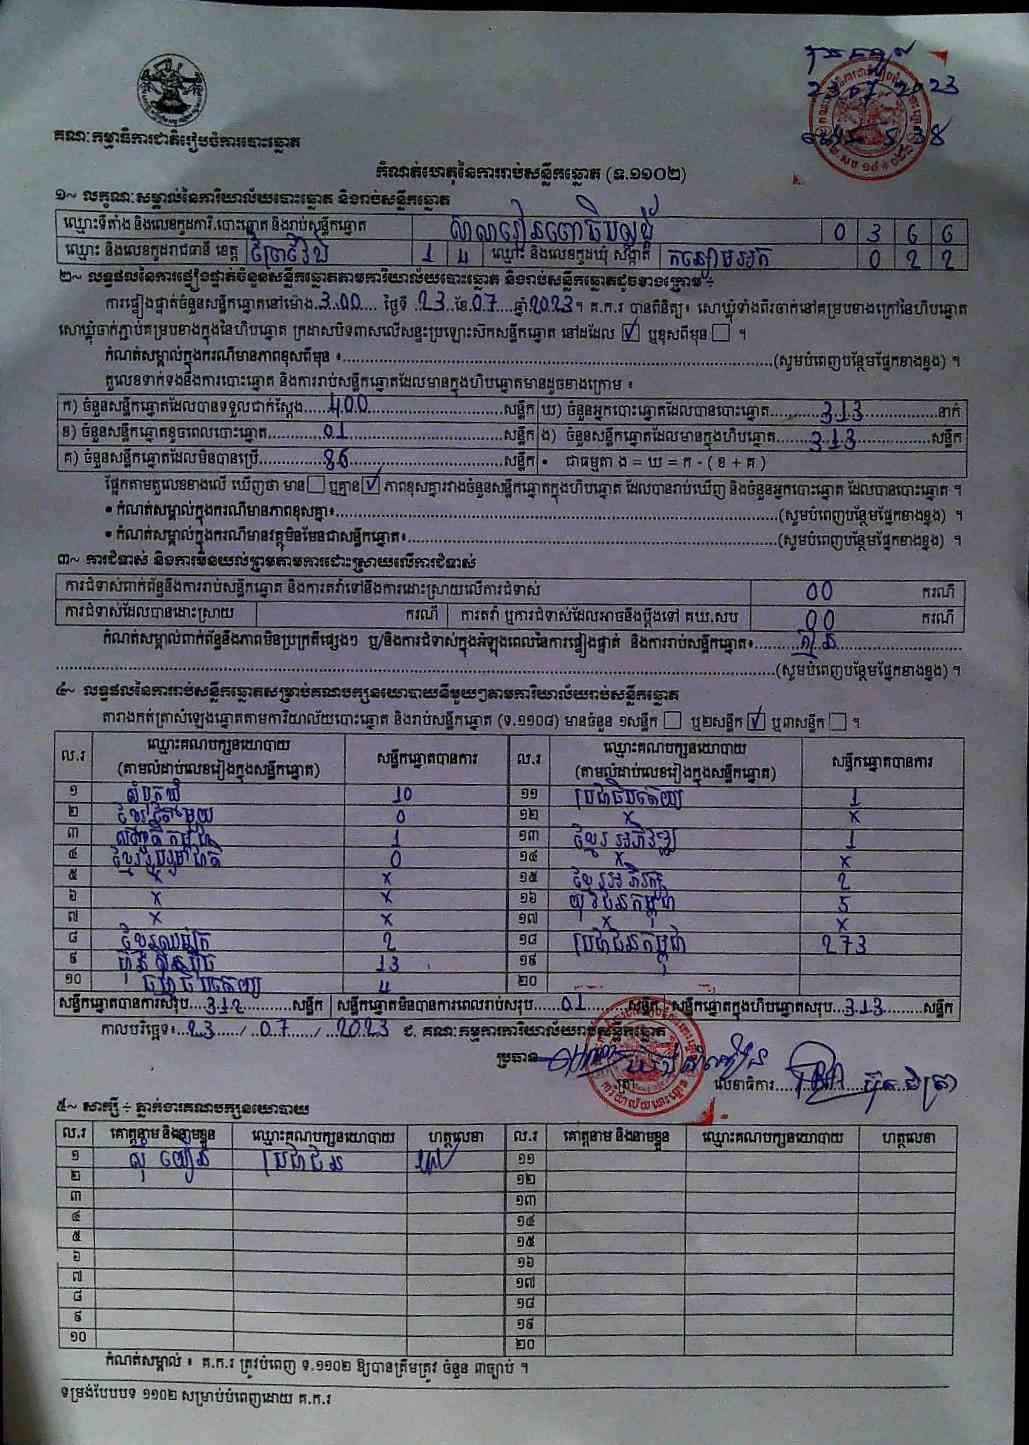 23 07 2023
គណៈកម្មាធិការជាតិរៀបចំការបោះឆ្នោត
កំណត់ហេតុនៃការរាប់សន្លឹកឆ្នោត (ទ.១១០២)
១~ លក្ខណៈសម្គាល់នៃការិយាល័យបោះឆ្នោត និងរាប់សន្លឹកឆ្នោត
ឈ្មោះទីតាំង និងលេខកូដការិ.បោះឆ្នោត និងរាប់សន្លឹកឆ្នោត 0 3 6 6
ឈ្មោះ និងលេខកូដរាជធានី ខេត្ត ព្រៃវែង 1 4 ឈ្មោះ និងលេខកូដឃុំ សង្កាត់ 0 2 2
២~ លទ្ធផលនៃការផ្ទៀងផ្ទាត់ចំនួនសន្លឹកឆ្នោតតាមការិយាល័យបោះឆ្នោត និងរាប់សន្លឹកឆ្នោតដូចខាងក្រោម ÷
ការផ្ទៀងផ្ទាត់ចំនួនសន្លឹកឆ្នោតនៅម៉ោង 3.00 ថ្ងៃទី 23 ខែ 07 ឆ្នាំ 2023 ។ គ.ក.រ បានពិនិត្យ៖ សោឃ្លុំទាំងពីរចាក់នៅគម្របខាងក្រៅនៃហិបឆ្នោត
សោឃ្លុំចាក់ភ្ជាប់គម្របខាងក្នុងនៃហិបឆ្នោត ក្រដាសបិទពាសលើសន្ទះប្រឡោះស៊កសន្លឹកឆ្នោត នៅដដែល ☑ ឬខុសពីមុន ☐ ។
កំណត់សម្គាល់ក្នុងករណីមានភាពខុសពីមុន ៖ (សូមបំពេញបន្ថែមផ្នែកខាងខ្នង) ។
តួលេខទាក់ទងនឹងការបោះឆ្នោត និងការរាប់សន្លឹកឆ្នោតដែលមានក្នុងហិបឆ្នោតមានដូចខាងក្រោម ៖
ក) ចំនួនសន្លឹកឆ្នោតដែលបានទទួលជាក់ស្តែង 400 សន្លឹក ឃ) ចំនួនអ្នកបោះឆ្នោតដែលបានបោះឆ្នោត 313 នាក់
ខ) ចំនួនសន្លឹកឆ្នោតខូចពេលបោះឆ្នោត 01 សន្លឹក ង) ចំនួនសន្លឹកឆ្នោតដែលមានក្នុងហិបឆ្នោត 313 សន្លឹក
គ) ចំនួនសន្លឹកឆ្នោតដែលមិនបានប្រើ 86 សន្លឹក • ជាធម្មតា ង = ឃ = ក - ( ខ + គ )
ផ្អែកតាមតួលេខខាងលើ ឃើញថា មាន ☐ ឬគ្មាន ☑ ភាពខុសគ្នារវាងចំនួនសន្លឹកឆ្នោតក្នុងហិបឆ្នោត ដែលបានរាប់ឃើញ និងចំនួនអ្នកបោះឆ្នោត ដែលបានបោះឆ្នោត ។
• កំណត់សម្គាល់ក្នុងករណីមានភាពខុសគ្នា៖ (សូមបំពេញបន្ថែមផ្នែកខាងខ្នង) ។
• កំណត់សម្គាល់ក្នុងករណីមានវត្ថុមិនមែនជាសន្លឹកឆ្នោត៖ (សូមបំពេញបន្ថែមផ្នែកខាងខ្នង) ។
៣~ ការជំទាស់ និងការមិនយល់ព្រមតាមការដោះស្រាយលើការជំទាស់
ការជំទាស់ពាក់ព័ន្ធនឹងការរាប់សន្លឹកឆ្នោត និងការតវ៉ាទៅនឹងការដោះស្រាយលើការជំទាស់ 00 ករណី
ការជំទាស់ដែលបានដោះស្រាយ ករណី ការតវ៉ា ឬការជំទាស់ដែលអាចនឹងប្តឹងទៅ គឃ.សប 00 ករណី
កំណត់សម្គាល់ពាក់ព័ន្ធនឹងភាពមិនប្រក្រតីផ្សេងៗ ឬ/និងការជំទាស់ក្នុងអំឡុងពេលនៃការផ្ទៀងផ្ទាត់ និងការរាប់សន្លឹកឆ្នោត៖ គ្មាន
(សូមបំពេញបន្ថែមផ្នែកខាងខ្នង) ។
៤~ លទ្ធផលនៃការរាប់សន្លឹកឆ្នោតសម្រាប់គណបក្សនយោបាយនីមួយៗតាមការិយាល័យរាប់សន្លឹកឆ្នោត
តារាងកត់ត្រាសំឡេងឆ្នោតតាមការិយាល័យបោះឆ្នោត និងរាប់សន្លឹកឆ្នោត (ទ.១១០៨) មានចំនួន ១សន្លឹក ☐ ឬ២សន្លឹក ☑ ឬ៣សន្លឹក ☐ ។
ល.រ ឈ្មោះគណបក្សនយោបាយ (តាមលំដាប់លេខរៀងក្នុងសន្លឹកឆ្នោត) សន្លឹកឆ្នោតបានការ ល.រ ឈ្មោះគណបក្សនយោបាយ (តាមលំដាប់លេខរៀងក្នុងសន្លឹកឆ្នោត) សន្លឹកឆ្នោតបានការ
១ 10 ១១ ប្រជាធិបតេយ្យ 1
២ ខ្មែររួបរួម 0 ១២ x x
៣ 1 ១៣ ខ្មែរអភិវឌ្ឍ 1
៤ 0 ១៤ x x
៥ x x ១៥ ខ្មែរអភិរក្ស 2
៦ x x ១៦ យុវជនកម្ពុជា 5
៧ x x ១៧ x x
៨ 2 ១៨ ប្រជាជនកម្ពុជា 273
៩ ហ៊្វុនស៊ិនប៉ិច 13 ១៩
១០ 4 ២០
សន្លឹកឆ្នោតបានការសរុប 312 សន្លឹក សន្លឹកឆ្នោតមិនបានការពេលរាប់សរុប 01 សន្លឹក សន្លឹកឆ្នោតក្នុងហិបឆ្នោតសរុប 313 សន្លឹក
កាលបរិច្ឆេទ៖ 23 / 07 / 2023 ជ. គណៈកម្មការការិយាល័យរាប់សន្លឹកឆ្នោត
ប្រធាន (ត្រា) លេខាធិការ
៥~ សាក្សី ÷ ភ្នាក់ងារគណបក្សនយោបាយ
ល.រ គោត្តនាម និងនាមខ្លួន ឈ្មោះគណបក្សនយោបាយ ហត្ថលេខា ល.រ គោត្តនាម និងនាមខ្លួន ឈ្មោះគណបក្សនយោបាយ ហត្ថលេខា
១ ប្រជាជន ១១
២ ១២
៣ ១៣
៤ ១៤
៥ ១៥
៦ ១៦
៧ ១៧
៨ ១៨
៩ ១៩
១០ ២០
កំណត់សម្គាល់ ៖ គ.ក.រ ត្រូវបំពេញ ទ.១១០២ ឱ្យបានត្រឹមត្រូវ ចំនួន ៣ច្បាប់ ។
ទម្រង់បែបបទ ១១០២ សម្រាប់បំពេញដោយ គ.ក.រ